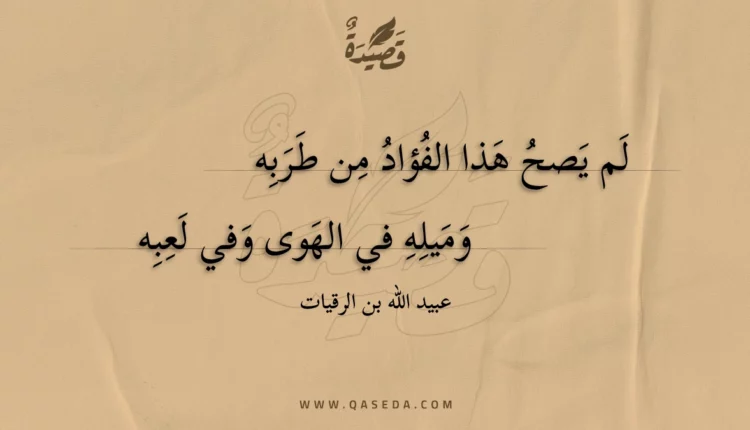 قَصِيْدَةٌ
لَم يَصحُ هَذا الفُؤادُ مِن طَرَبِه
وَمَيلِهِ في الهَوى وَفي لَعِبِه
عبيد الله بن الرقيات
WWW.QASEDA.COM